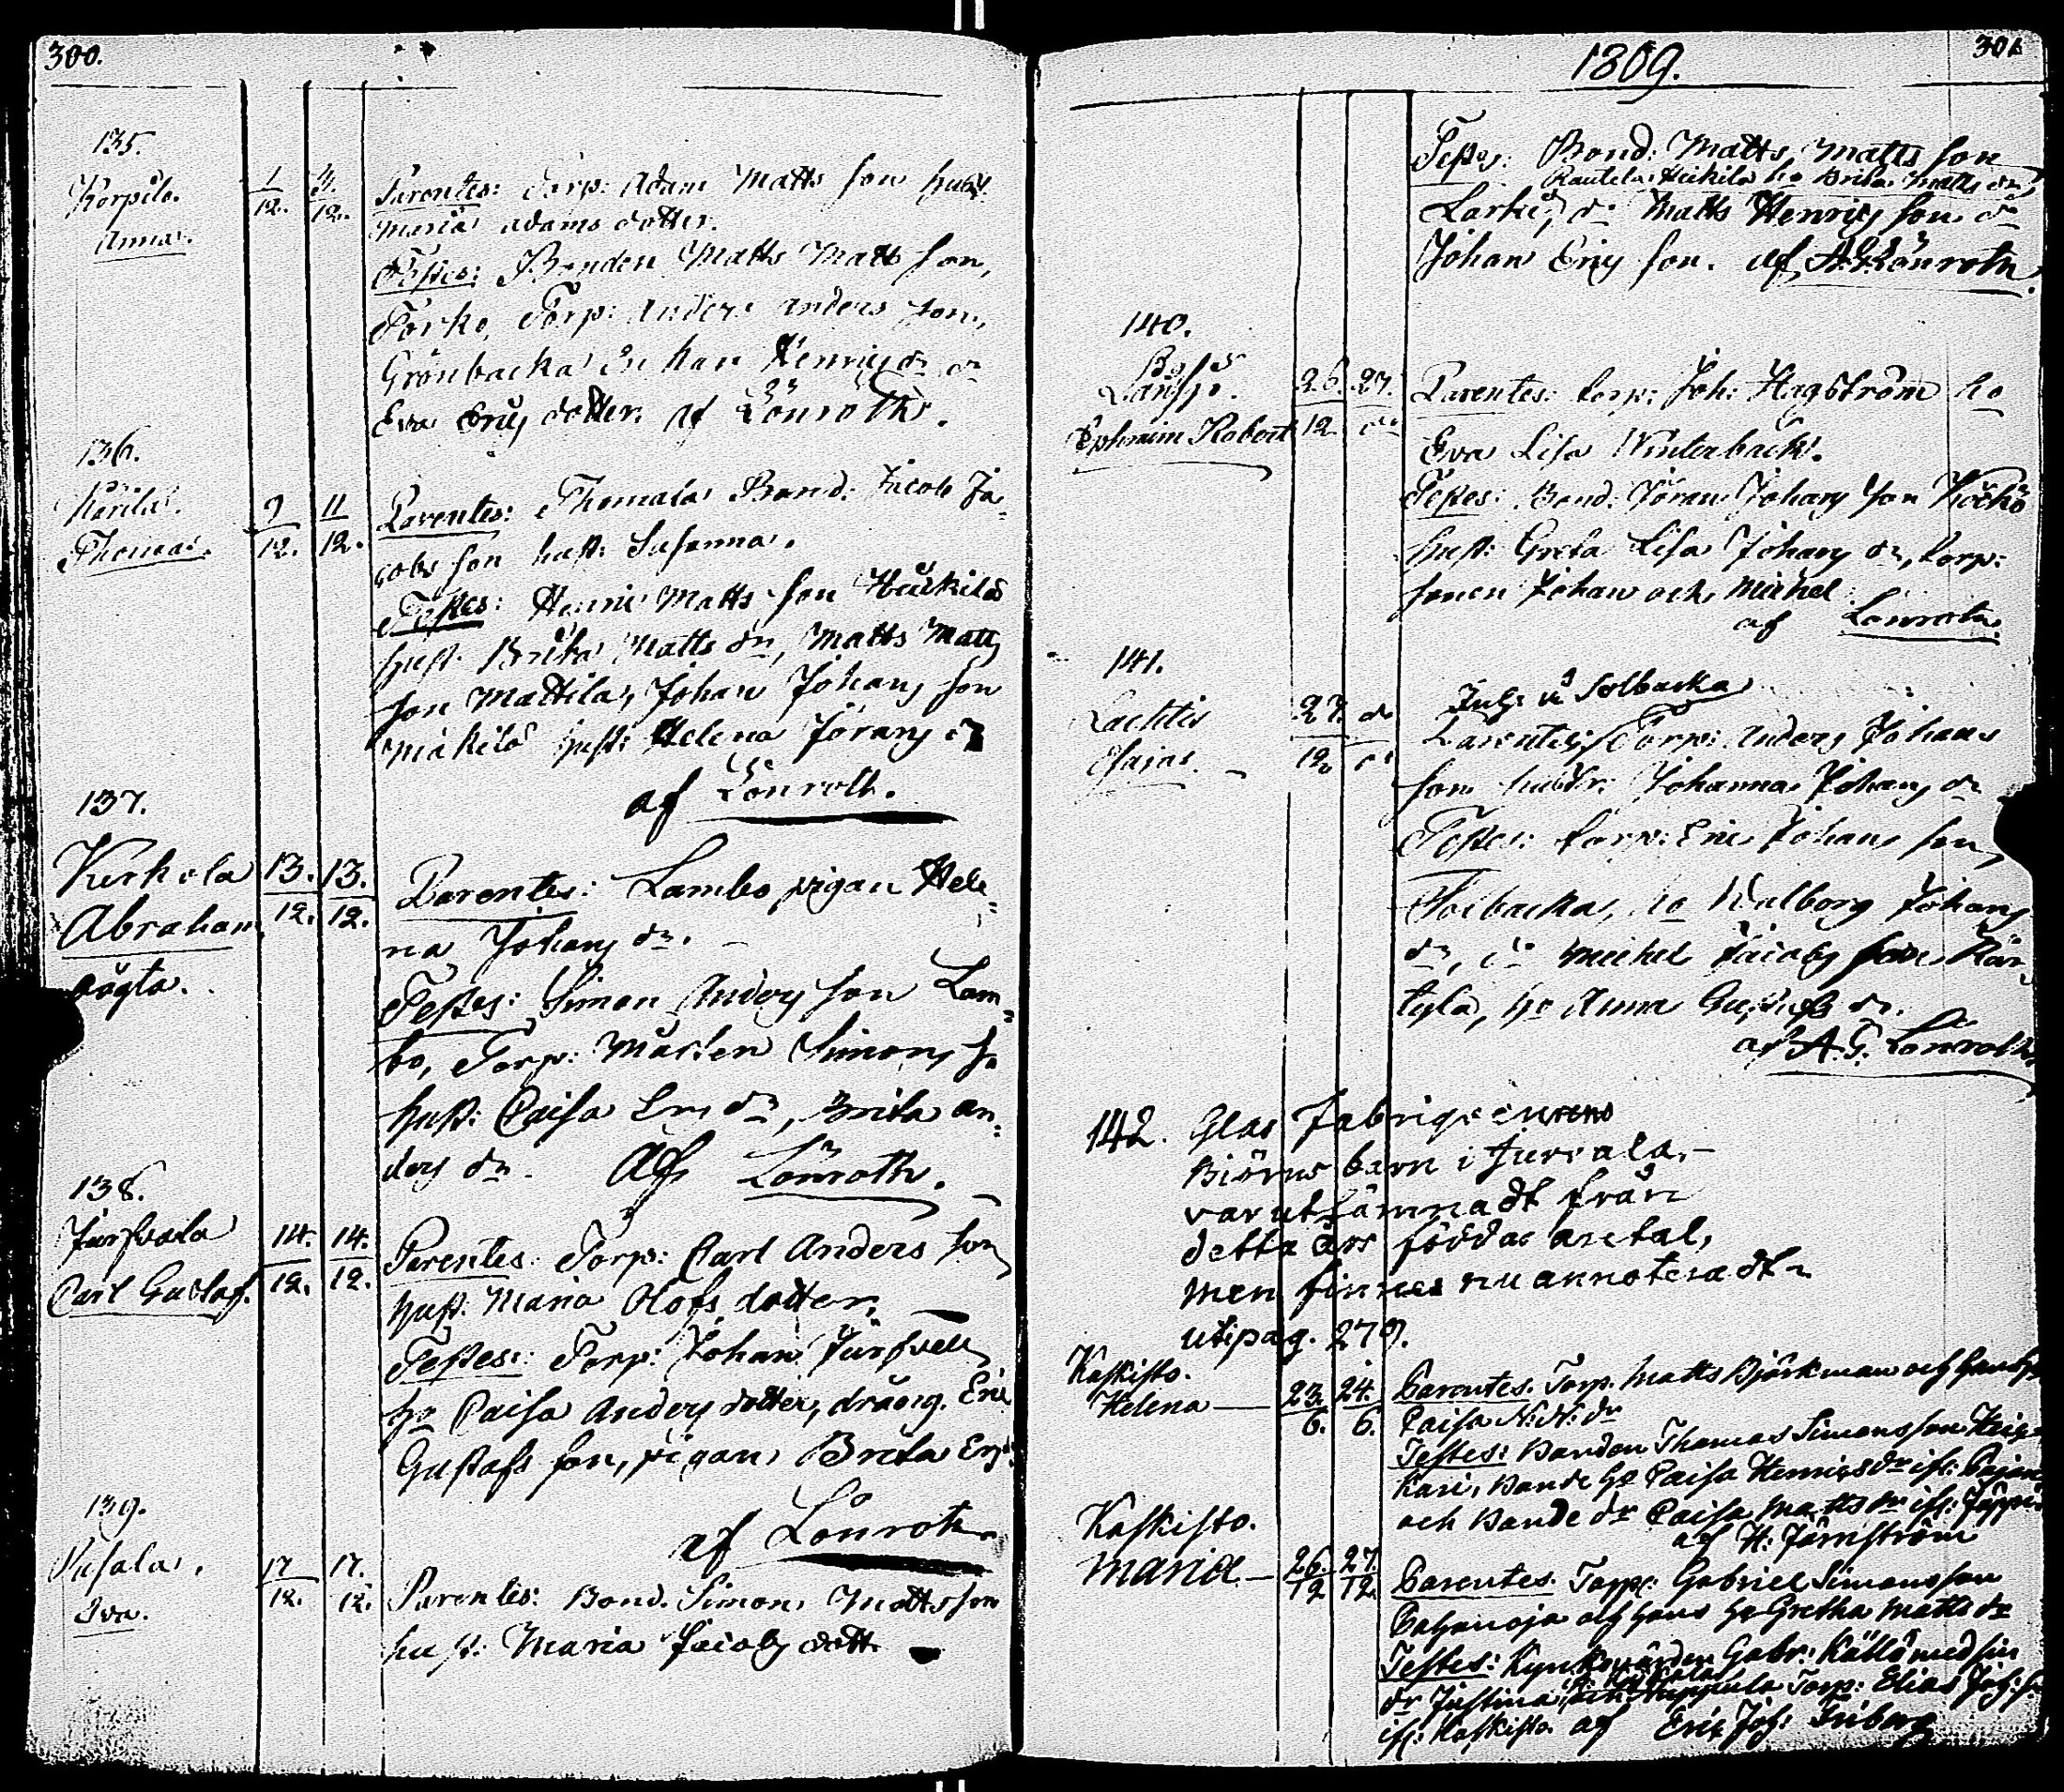 300.
135.
Korpilo.
Anna.
1/12. 3./12.
Parentes: Torp: Adam Matts son hust:
Maria Adams dotter.
Testes: Bonden Matts Matts son,
Torko, Torp: Anders Anders son,
Grönbacka Enkan Henrics dr
Eva Erics dotter. af Lönroth.
136.
Thomas.
9/12. 11/12.
Parentes: Thomala Bond: Jacob Ja=
cobs son hust: Susanna.
Testes: Henric Matts son Heikilä
hust: Brita Matts dr, Matts Matts
son Mattila, Johan Johans son
Mäkilä hust: Helena Jörans dr
af Lönroth.
137.
Kerkola
Abraham
oägta.
13./12. 13./12.
Parentes: Lambo pigan Hele=
na Johans dr.
Testes: Simon Anders son Lam=
bo, Torp: Mårten Simons so
hust: Caisa Erics dr, Brita An=
ders dr. Af Lönroth.
138.
Jurfvala
Carl Gustaf.
14./12. 14./12.
Parentes: Torp: Carl Anders son
hust: Maria Olofs dotter.
Testes: Torp: Johan Jurfvell
ho Caisa Anders dotter, dräng. Eric
Gustafs son, pigan Brita Ers
af Lönroth
139.
Pusala.
Eva.
17/12. 17./12.
Parentes: Bond. Simon Matts son
hust: Maria Jacobs dott.
1809.
301
Testes: Bond: Matts Matts son
Rautila, Heikilä ho Brita Matts dr,
Larki, do Matts Henrics son do
Johan Erics son. af A. G. Lönroth
140.
Ephraim Robert
26./12. 27./do
Parentes: torp: Joh: Hagström ho
Eva Lisa Winterbäck.
Testes: Bond: Jöran Johans son Köckö
hust: Greta Lisa Johans dr, torp:
sonen Johan och Michel
af Lönroth.
141.
Lachtis
Esajas.
27./12. do
Inh: i Tolbacka
Parentes: Torp: Anders Johans
son hustr: Johanna Johans dr
Testes: torp: Eric Johans son,
Tolbacka, ho Walborg Johans
dr, do Michel Jacobs son Kär=
tylä, ho Anna Gustafs dr.
af A. G. Lönroth
142. Glas Fabriqueurens
Björns barn i Jurvala,
var utlämnadt från
detta års föddas antal,
men finnes nu annoteradt
uti pag. 279.
Koskisto.
Helena — 23./6. 24./6.
Parentes. Torp. Matts Björkman och hans ho
Caisa N: N: dr
Testes: Bonden Thomas Simonsson
kari, Bonde ho Caisa Henricsdr ifr:
och Bonde dr Caisa Matts dr ifr:
af H: Jernström
Koskisto.
Maria — 26./12 27./12.
Parentes. Torp: Gabriel Simonsson
och hans ho Gretha Matts dr
Testes: Kyrkovärden Gabr: Källö med sin
dr Justina Torp: Elias Joh: s:
ifr: Koskisto af Eric Joh: Friberg